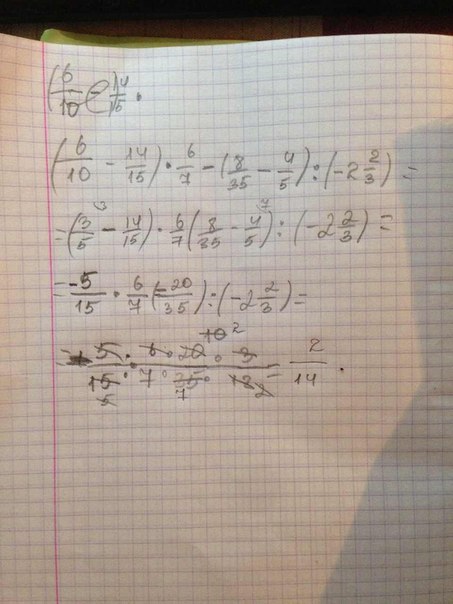 (6/10 - 14/15 .
(6/10 - 14/15) · 6/7 - (8/35 - 4/5) : (-2 2/3) =
= (3/5 - 14/15) · 6/7 (8/35 - 4/5) : (-2 2/3) =
= -5/15 · 6/7 (-20/35) : (-2 2/3) =
= 2/14 .